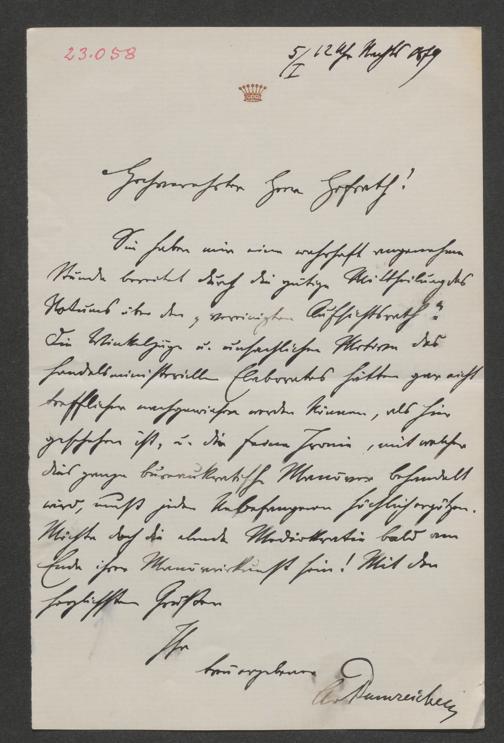 23.058
5/I 12 Uhr Nachts 1879
Hochverehrter Herr Hofrath!
Sie haben mir eine wahrhaft angenehme
Stunde bereitet durch die gütige Mittheilung des
Votums über den „vereinigten Aufsichtsrath“.
Die Winkelzüge u. unsachlichen Motive des
handelsministeriellen Elaborates hätten gar nicht
trefflicher nachgewiesen werden können, als hier
geschehen ist, u. die feine Ironie, mit welcher
dies ganze bureaukratische Manöver behandelt
wird, muß jeden Unbefangenen höchlich ergötzen.
Möchte doch die elende Mediokratie bald am
Ende ihrer sein! Mit den
herzlichsten Grüßen
Ihr
treuergebener
Dumreicher